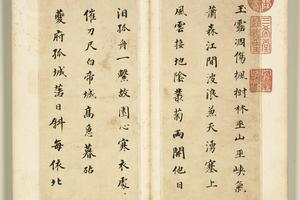 玉露凋傷楓樹林巫山巫峽氣
蕭森江間波浪兼天湧塞上
風雲接地陰叢菊兩開他日
泪孤舟一繫故園心寒衣處
催刀尺白帝城高急暮砧
夔府孤城落日斜每依北